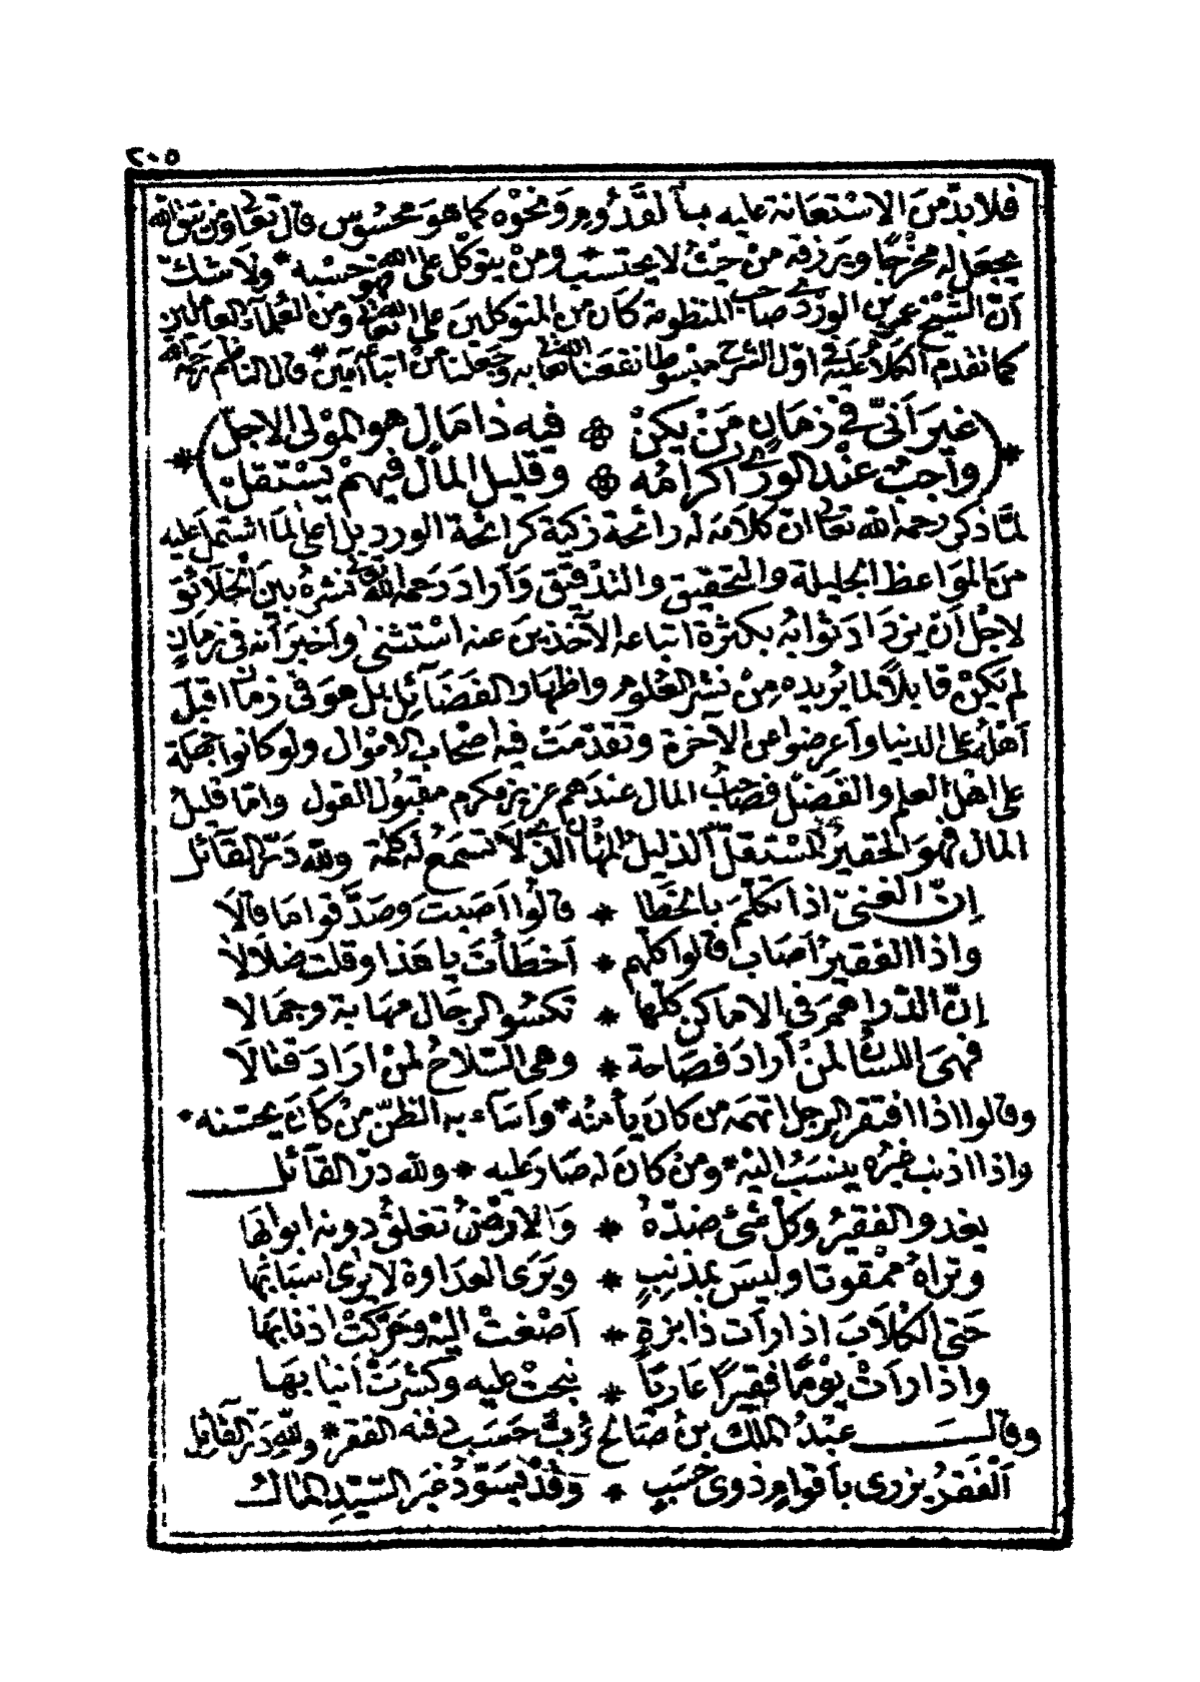 ٢٠٥
فلا بدّ من الاستعانة عليه بالقدوم ونحوه كما هو محسوس قال تعالى ومن يتق الله
يجعل له مخرجا ويرزقه من حيث لا يحتسب ومن يتوكل على الله فهو حسبه * ولا شك
أنّ الشيخ عمر بن الوردي صاحب المنظومة كان من المتوكلين على الله تعالى ومن العلماء العاملين
كما تقدم الكلام عليه في اوّل الشرح مبسوطا نفعنا الله تعالى به وجعلنا من اتباعه آمين * قال الناظم رحمه الله
* (غير أنّي في زمان من يكن ❁ فيه ذا مال هو المولى الاجلّ) *
(واجب عند الورى اكرامه ❁ وقليل المال فيهم يستقلّ)
لمّا ذكر رحمه الله تعالى ان كلامه له رائحة زكية كرائحة الورد بل اعلى لما اشتمل عليه
من المواعظ الجليلة والتحقيق والتدقيق وأراد رحمه الله تعالى نشره بين الخلائق
لاجل أن يزداد ثوابه بكثرة اتباعه الآخذين عنه استثنى وأخبر أنه في زمان
لم يكن قابلا لما يريده من نشر العلوم واظهار الفضائل بل هو في زمان اقبل
أهله على الدنيا وأعرضوا عن الآخرة وتقدمت فيه اصحاب الاموال ولو كانوا جهلة
على اهل العلم والفضل فصاحب المال عندهم عزيز مكرم مقبول القول وامّا قليل
المال فهو الحقير المستقلّ الذليل المهان الذي لا تسمع له كلمة ولله درّ القائل
إنّ الغنيّ اذا تكلم بالخطا * قالوا اصبت وصدّقوا ما قالا
واذا الفقير أصاب قالوا كلهم * أخطأت يا هذا وقلت ضلالا
إنّ الدّراهم في الاماكن كلها * تكسو الرجال مهابة وجمالا
فهي اللسان لمن أراد فصاحة * وهي السّلاح لمن اراد قتالا
وقالوا اذا افتقر الرجل اتهمه من كان يأمنه * وأساء به الظنّ من كان يحسنه *
واذا اذنب غيره ينسب اليه * ومن كان له صار عليه * ولله درّ القائل
يغدو الفقير وكلّ شئ ضدّه * والارض تغلق دونه ابوابها
وتراه ممقوتا وليس بمذنب * ويرى العداوة لا يرى اسبابها
حتى الكلاب اذا رأت ذا بزة * أصغت اليه وحرّكت اذنابها
واذا رأت يوما فقيرا عاريا * نبحت عليه وكشرت أنيابها
وقال عبد الملك بن صالح ربّ حسب دفنه الفقر * ولله درّ القائل
ألفقر يزرى بأقوام ذوى حسب * وقد يسوّد غير السّيّد المال